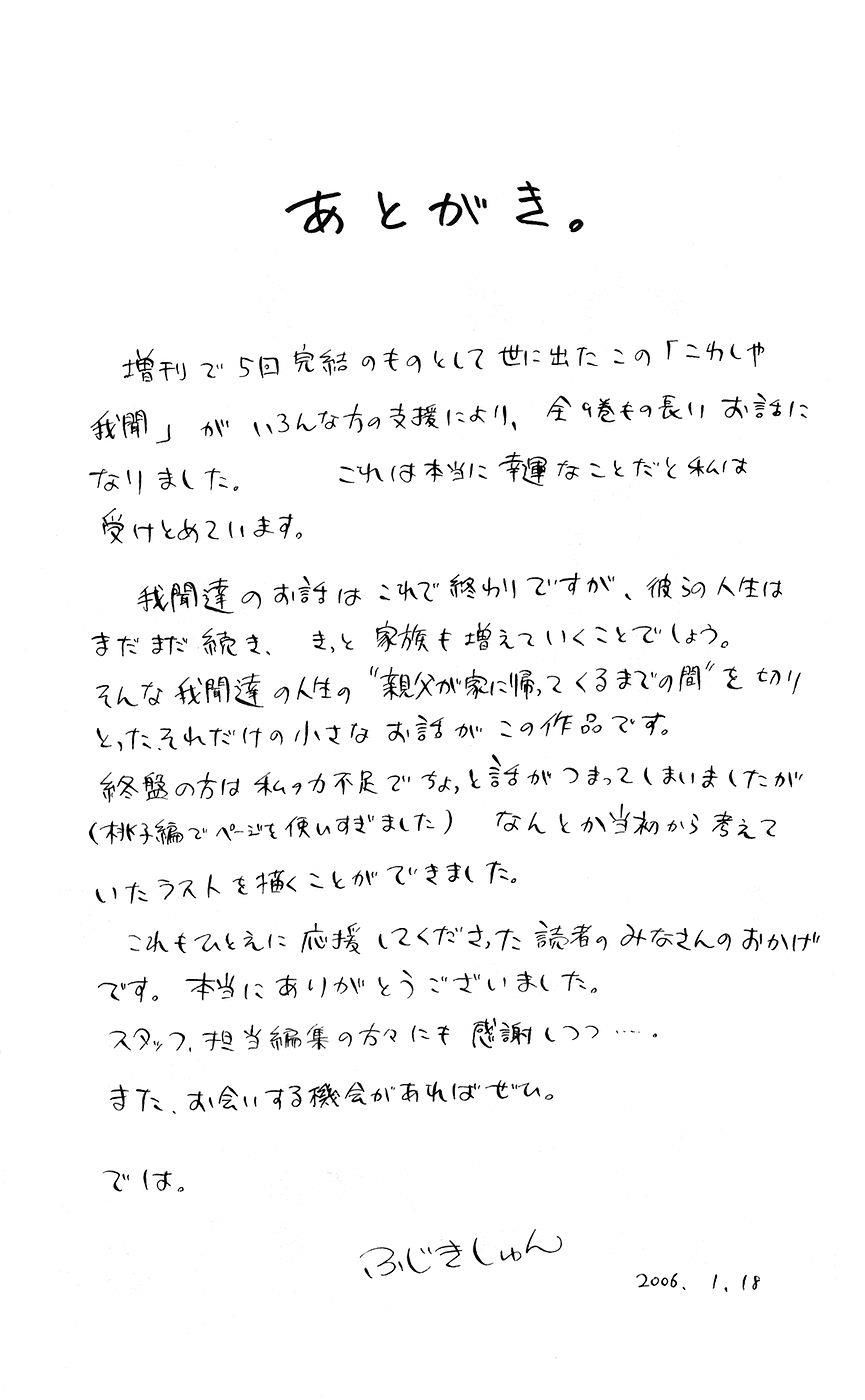 あとがき。
増刊で5回完結のものとして世に出たこの「こわしや
我聞」がいろんな方の支援により、全9巻もの長いお話に
なりました。 これは本当に幸運なことだと私は
受けとめています。
我聞達のお話はこれで終わりですが、彼らの人生は
まだまだ続き、きっと家族も増えていくことでしょう。
そんな我聞達の人生の“親父が家に帰ってくるまでの間”を切り
とった、それだけの小さなお話がこの作品です。
終盤の方は私の力不足でちょっと話がつまってしまいましたが
(桃子編でページを使いすぎました) なんとか当初から考えて
いたラストを描くことができました。
これもひとえに応援してくださった読者のみなさんのおかげ
です。本当にありがとうございました。
スタッフ、担当編集の方々にも感謝しつつ…。
また、お会いする機会があればぜひ。
では。
ふじきしゅん
2006. 1. 18